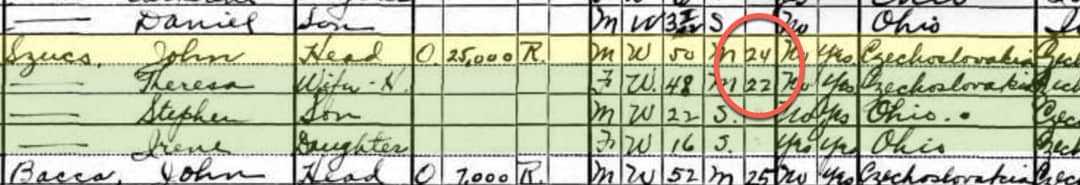 Daniel Son M W 3 S No Ohio
Szucs, John Head O 25,000 R. M W 50 M 24 No Yes Czechoslovakia
— Theresa Wife-H. F W. 48 M 22 No Yes Czechoslovakia
— Stephen Son M W 22 S. No Yes Ohio.
— Irene Daughter F W 16 S. Yes Yes Ohio
Bacca, John Head O 7,000 R. M W 52 M 25 No Yes Czechoslovakia